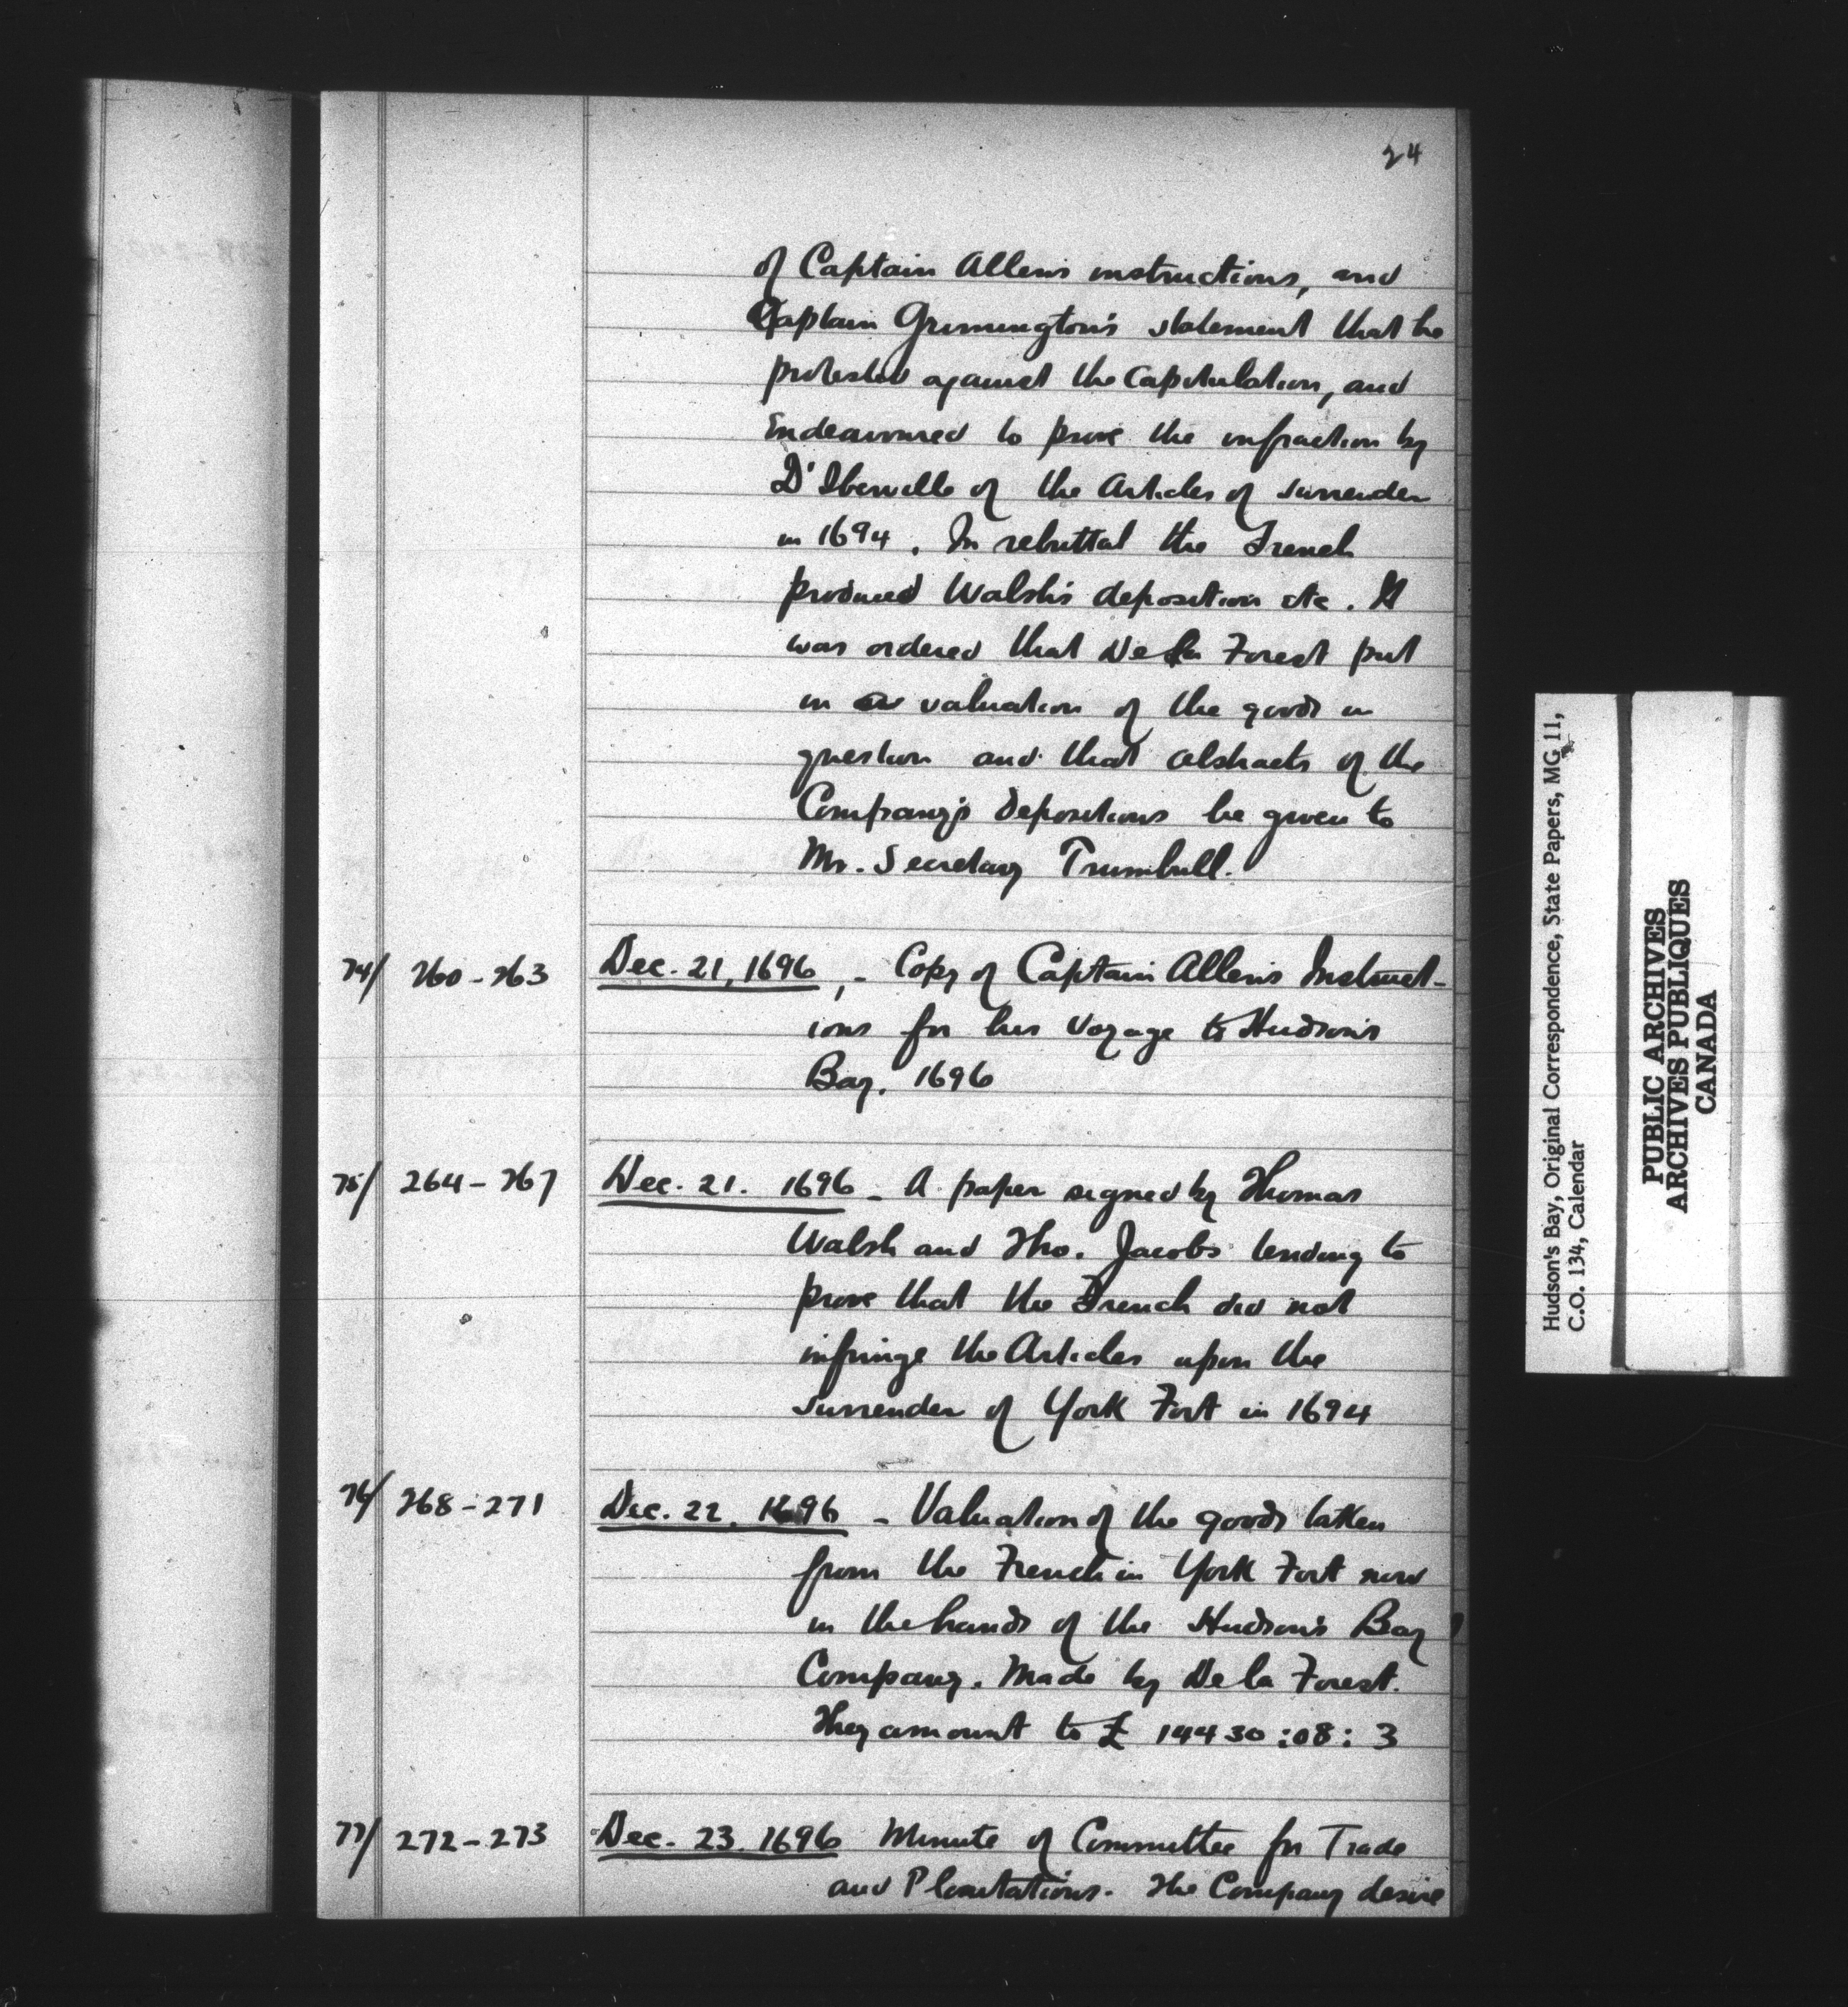 24
of Captain Allen's instructions, and
Captain Grimmington's statement that he
protested against the Capitulation, and
Endeavoured to prove the infraction by
D'Iberville of the Articles of surrender
in 1694. In rebuttal the French
produced Walsh's deposition etc. It
was ordered that De la Forest put
in a valuation of the goods in
question and that abstracts of the
Company's depositions be given to
Mr. Secretary Trumbull.
74/ 260-263 Dec. 21, 1696, - Copy of Captain Allen's Instruct-
ions for his voyage to Hudson's
Bay. 1696
75/ 264-267 Dec. 21. 1696 - A paper signed by Thomas
Walsh and Tho. Jacobs tending to
prove that the French did not
infringe the Articles upon the
surrender of York Fort in 1694
76/ 268-271 Dec. 22. 1696 - Valuation of the goods taken
from the French in York Fort now
in the hands of the Hudson's Bay
Company. Made by De la Forest.
They amount to £ 14430:08:3
77/ 272-273 Dec. 23. 1696 Minute of Committee for Trade
and Plantations. The Company desire
Hudson's Bay, Original Correspondence, State Papers, MG 11,
C.O. 134, Calendar
PUBLIC ARCHIVES
ARCHIVES PUBLIQUES
CANADA